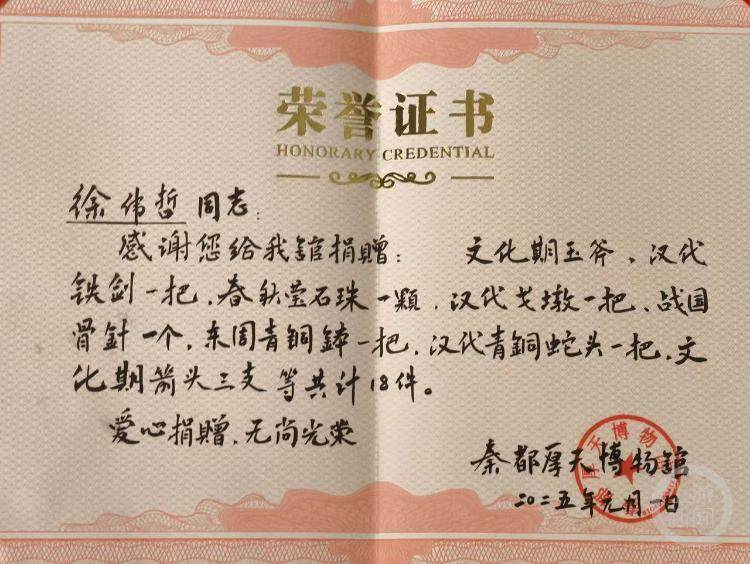 荣誉证书
HONORARY CREDENTIAL
徐伟哲同志：
感谢您给我舘捐贈： 文化期玉斧、汉代
铁剑一把、春秋莹石珠一顆，汉代戈墩一把、战国
骨針一个，东周青铜鉢一把，汉代青銅蛇头一把、文
化期箭头三支等共计18件。
爱心捐贈，无尚光荣
秦都厚天博物舘
二〇二五年元月一日